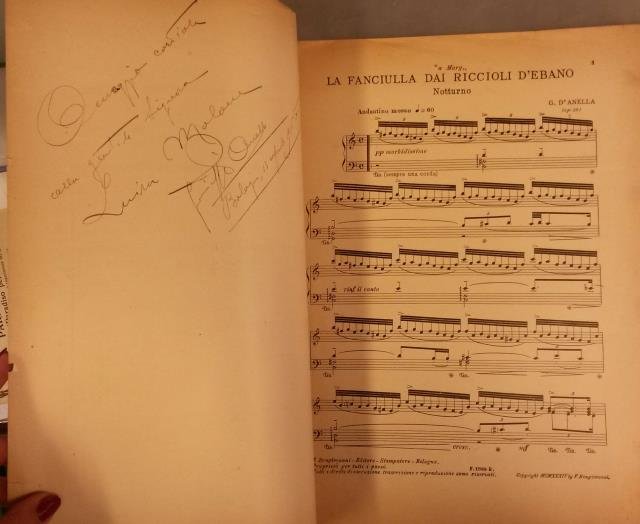 Omaggio cordiale
alla gentile Signora
Luisa
Bologna
"a Mary„
3
LA FANCIULLA DAI RICCIOLI D'EBANO
Notturno
Andantino mosso ♩=60
G. D'ANELLA
pp morbidissimo
(sempre una corda)
rinf il canto
cresc.
mff
F. Bongiovanni - Editore - Stampatore - Bologna.
Proprietà per tutti i paesi.
Tutti i diritti di esecuzione trascrizione e riproduzione sono riservati.
Copyright MCMXXXIV by F. Bongiovanni.